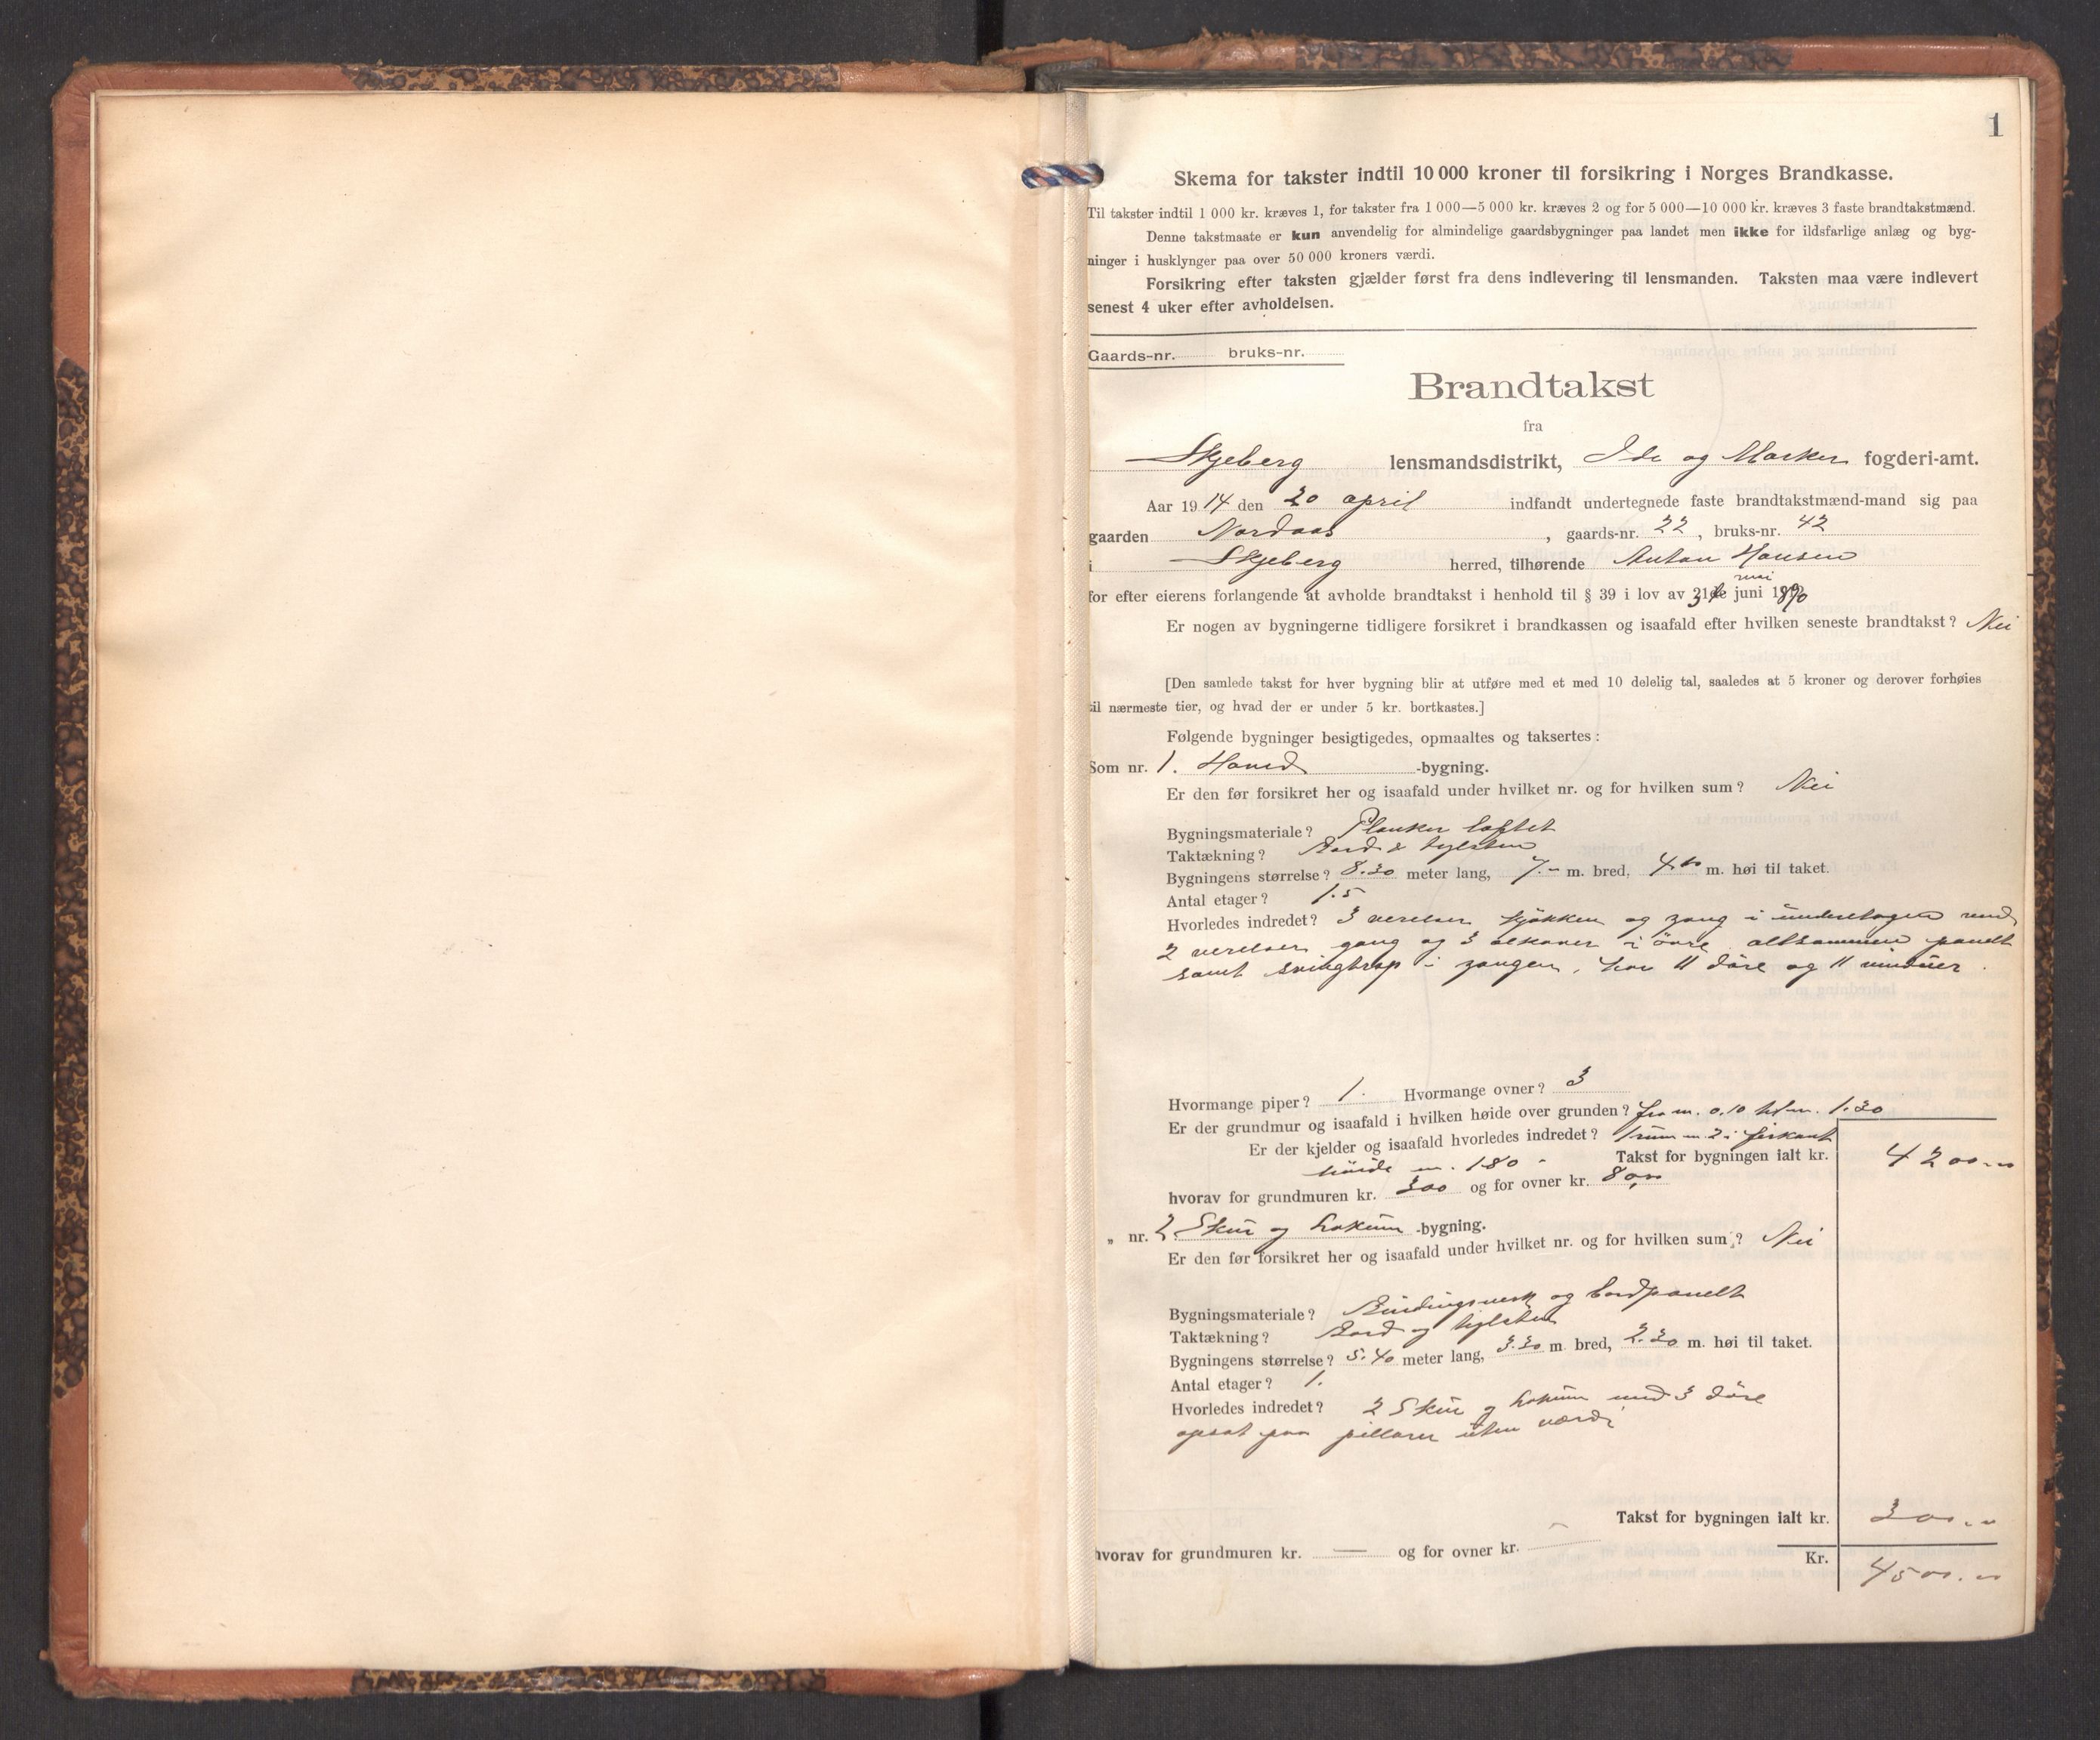 1
Skema for takster indtil 10 000 kroner til forsikring i Norges Brandkasse.
Til takster indtil 1 000 kr. kræves 1, for takster fra 1 000—5 000 kr. kræves 2 og for 5 000—10 000 kr. kræves 3 faste brandtakstmænd.
Denne takstmaate er kun anvendelig for almindelige gaardsbygninger paa landet men ikke for ildsfarlige anlæg og byg-
ninger i husklynger paa over 50 000 kroners værdi.
Forsikring efter taksten gjælder først fra dens indlevering til lensmanden. Taksten maa være indlevert
senest 4 uker efter avholdelsen.
Gaards-nr. bruks-nr.
Brandtakst
fra
Skjeberg lensmandsdistrikt, Ide og Marker fogderi-amt.
Aar 1914 den 20 april indfandt undertegnede faste brandtakstmænd-mand sig paa
gaarden Nordaas, gaards-nr. 22, bruks-nr. 42
i Skjeberg herred, tilhørende Anton Hansen
mai
for efter eierens forlangende at avholde brandtakst i henhold til § 39 i lov av 31te juni 1890
Er nogen av bygningerne tidligere forsikret i brandkassen og isaafald efter hvilken seneste brandtakst? Nei
[Den samlede takst for hver bygning blir at utføre med et med 10 delelig tal, saaledes at 5 kroner og derover forhøies
til nærmeste tier, og hvad der er under 5 kr. bortkastes.]
Følgende bygninger besigtigedes, opmaaltes og taksertes:
Som nr. 1. Hoved -bygning.
Er den før forsikret her og isaafald under hvilket nr. og for hvilken sum? Nei
Bygningsmateriale? Planker laftet
Taktækning? Bord & tylsten
Bygningens størrelse? 8.30 meter lang, 7.- m. bred, m. høi til taket.
Antal etager? 1.5
Hvorledes indredet? 3 værelser kjøkken og gang i underetagen med
2 værelser gang og 3 alkover i övre altsammen panelt
samt svingtrap i gangen. har 11 döre og 11 vinduer.
Hvormange piper? 1. Hvormange ovner? 3
Er der grundmur og isaafald i hvilken høide over grunden? fra m. 0.10 til m. 1.30
Er der kjelder og isaafald hvorledes indredet? 1 rum m. 2 i firkant
höide m. 1.80 - Takst for bygningen ialt kr. 4200.-
hvorav for grundmuren kr. 300 og for ovner kr. 80,-
„ nr. 2. Skur og lokum -bygning.
Er den før forsikret her og isaafald under hvilket nr. og for hvilken sum? Nei
Bygningsmateriale? Bindingsverk og bordpanelt
Taktækning? Bord og tylsten
Bygningens størrelse? 5.40 meter lang, 3.30 m bred, 2.30 m. høi til taket.
Antal etager? 1.
Hvorledes indredet? 2 Skur og lokum med 3 döre
opsat paa pillarer uten værdi
Takst for bygningen ialt kr. 300.-
hvorav for grundmuren kr. — og for ovner kr. —
Kr. 4500.-